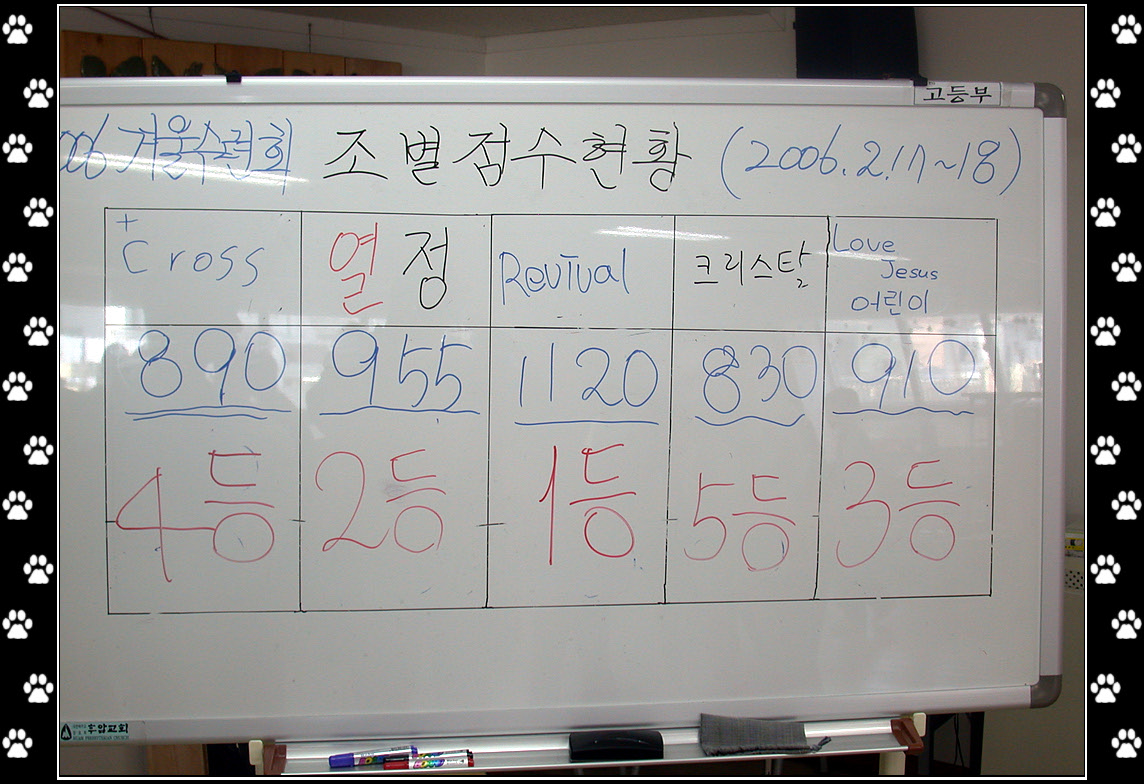 고등부
006 겨울수련회 조별점수현황 (2006.2.17~18)
+
Cross 열정 Revival 크리스탈 Love Jesus 어린이
890 955 1120 830 910
4등 2등 1등 5등 3등
후암교회